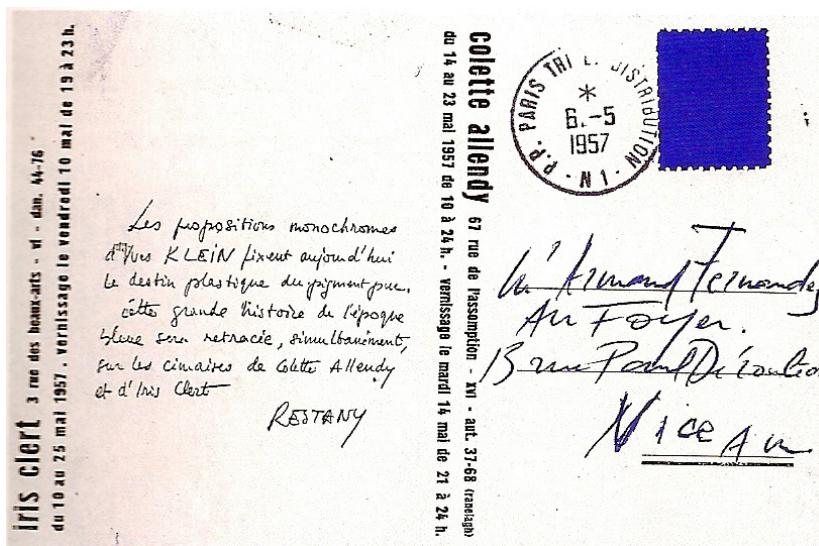 iris clert 3 rue des beaux-arts - vi - dan. 44-76
du 10 au 25 mai 1957. vernissage le vendredi 10 mai de 19 à 23 h.
Les propositions monochromes
d'Yves KLEIN fixent aujourd'hui
le destin plastique du pigment pur.
cette grande histoire de l'époque
bleue sera retracée, simultanément,
sur les cimaises de Colette Allendy
et d'Iris Clert
RESTANY
colette allendy 67 rue de l'assomption - xvi - aut. 37-68 (ranelagh)
du 14 au 23 mai 1957 de 10 à 24 h. - vernissage le mardi 14 mai de 21 à 24 h.
P.P. PARIS TRI DISTRIBUTION - N 1 -
6.-5
1957
Armand Fernandez
Au Foyer.
13 rue Paul
Nice